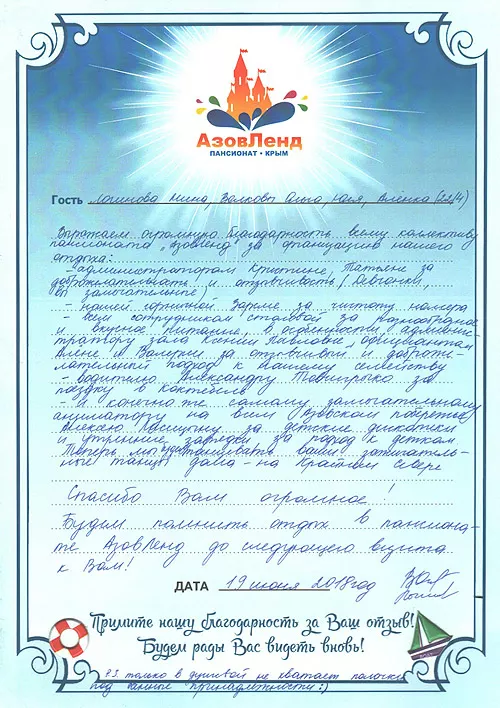 АзовЛенд
ПАНСИОНАТ • КРЫМ
Гость Логинова Нина, Волковы Ольга, Юля, Алёнка (22/4)
Выражаем огромную благодарность всему коллективу
пансионата "Азовленд" за организацию нашего
отдыха:
- администраторам Кристине, Татьяне за
доброжелательность и отзывчивость (Девчонки,
вы замечательные)
- нашей горничной Зареме за чистоту номера
- всем сотрудникам столовой за разнообразное
и вкусное питание, в особенности админис-
тратору зала Ксении Павловне, официантам
Алене и Валерии за отзывчивый и доброже-
лательный подход к нашему семейству
- водителю Александру за
поездку в Коктебель
и конечно же самому замечательному
аниматору на всем Азовском побережье
Алексею за детские дискотеки
и утренние зарядки за подход к деткам
Теперь мы будем танцевать ваши зажигатель-
ные танцы дома - на Крайнем Севере
Спасибо Вам огромное!
Будем помнить отдых в пансиона-
те АзовЛенд до следующего визита
к Вам!
ДАТА 19 июня 2018 год
Примите нашу благодарность за Ваш отзыв!
Будем рады Вас видеть вновь!
P.S. только в душевой не хватает полочки
под банные принадлежности :)